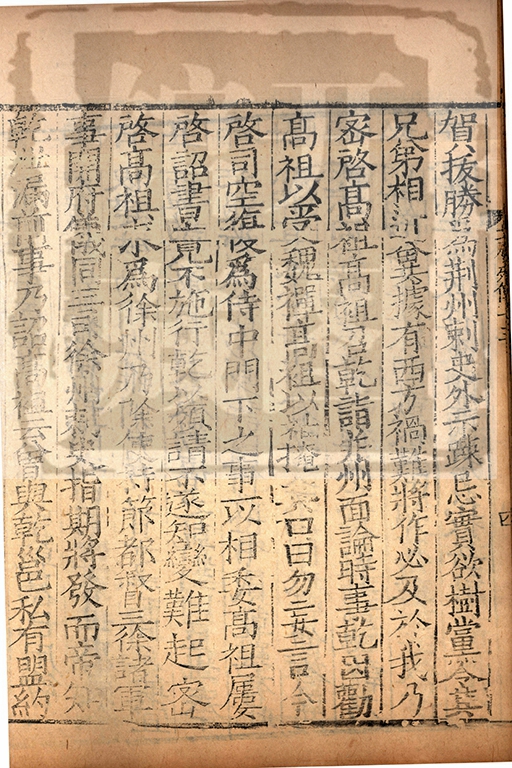 賀拔勝爲荆州刺史外示踈忌實欲樹黨令其
兄弟相近兾據有西方禍難將作必及於我乃
密啓髙祖髙祖召乾詣并州面論時事乾因勸
髙祖以受魏禪髙祖以袖掩其口曰勿妄言今
啓司空復爲侍中門下之事一以相委髙祖屢
啓詔書竟不施行乾以頻請不遂知變難起密
啓髙祖求爲徐州乃除使持節都督三徐諸軍
事開府儀同三司徐州刺史指期將發而帝知
乾泄漏前事乃詔髙祖云曾與乾邕私有盟約
四